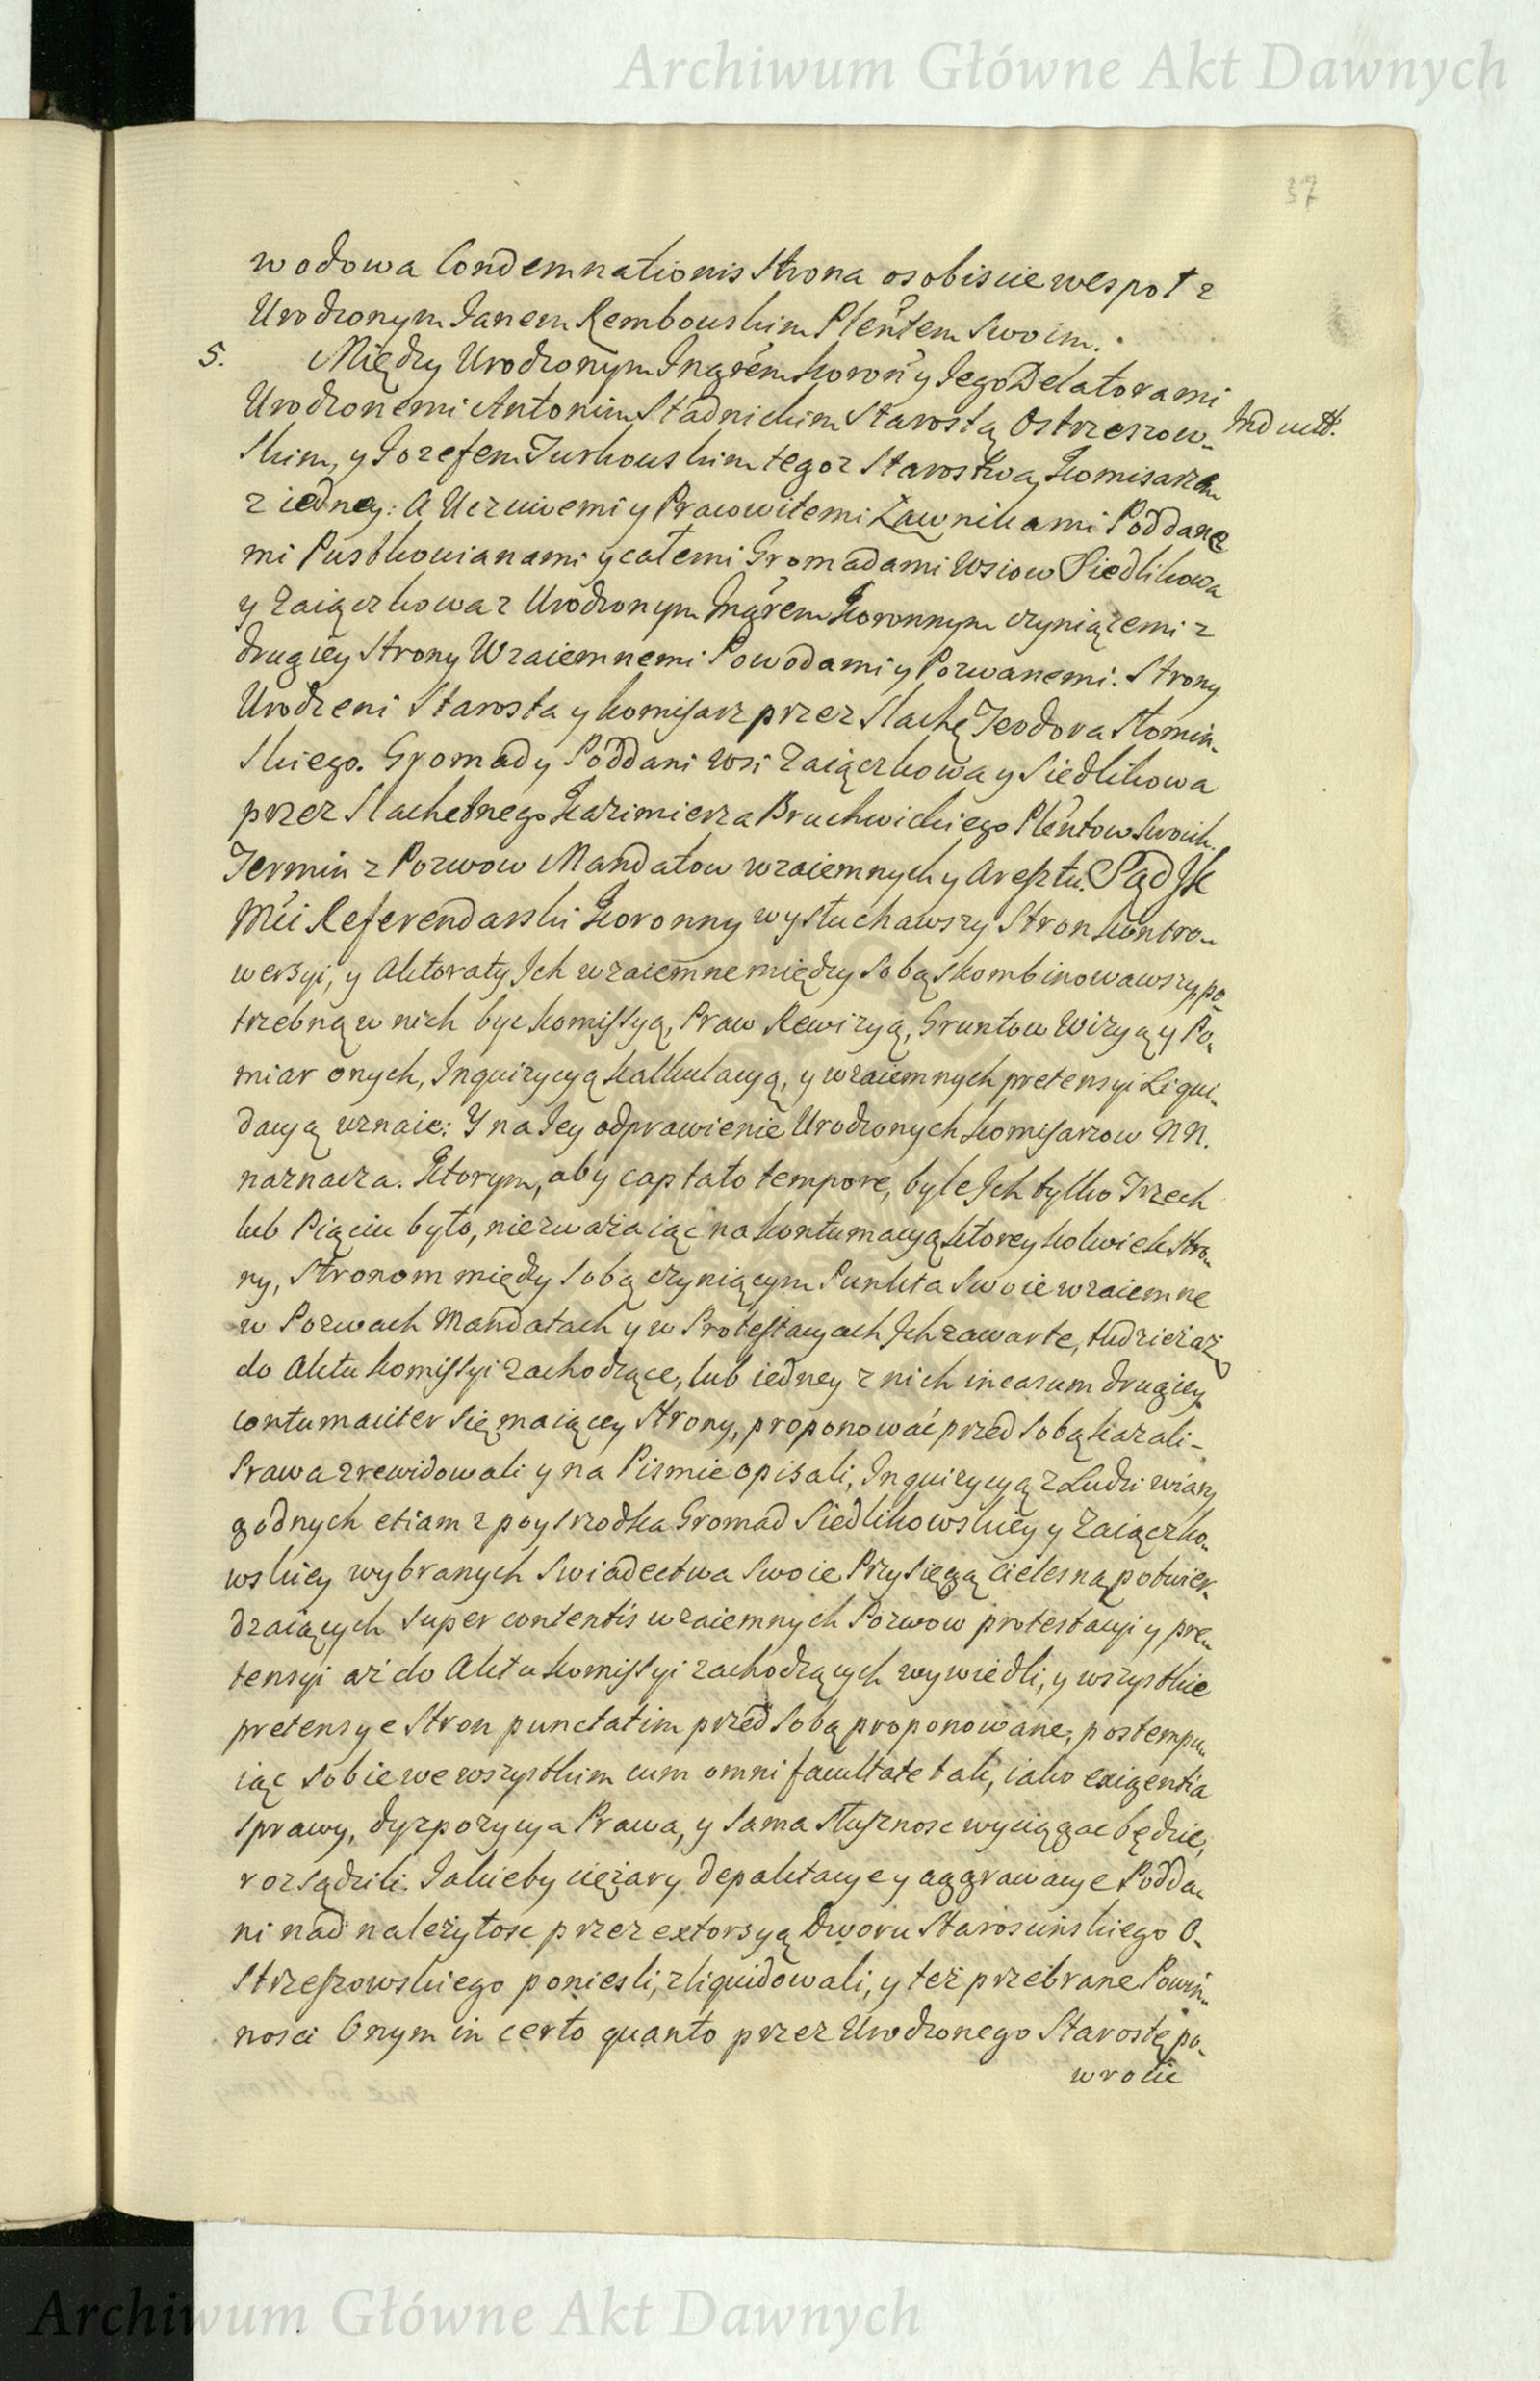 Archiwum Główne Akt Dawnych
37
wodowa Condemnationis Strona osobiscie wespoł z
Urodzonym Janem Rembowskim Plentem Swoim.
5. Między Urodzonym Ingrem Koron y Jego Delatorami
Urodzonemi Antonim Stadnickim Starostą Ostrzeszow-
skim, y Jozefem Turkowskim tegoz Starostwa Komisarzem
z iedney: A Uczciwemi y Pracowitemi Ławnikami Poddane
mi Pustkowianami y całemi Gromadami Wsiow Siedlikowa
y Zaiączkowa z Urodzonym Ingrem Koronnym czyniącemi z
drugiey Strony Wzaiemnemi Powodami y Pozwanemi. Strony
Urodzeni Starosta y Komisarz przez Slachę Teodora Słomin-
skiego. Gromady Poddani wsi Zaiączkowa y Siedlikowa
przez Slachetnego Kazimierza Bruchwickiego Plentow Swoich.
Termin z Pozwow Mandatow wzaiemnych y Aresztu. Sąd JK
Mci Referendarski Koronny wysłuchawszy Stron Kontro-
wersyi, y Aktoraty Ich wzaiemne między sobą skombinowawszy, po
trzebną w nich byc Komissyą, Praw Rewizyą, Gruntow Wizyą y Po-
miar onych, Inquizycyą Kalkulacyą, y wzaiemnych pretensyi Liqui-
dacyą uznaie: Y na Jey odprawienie Urodzonych Komisarzow NN.
naznacza. Ktorym, aby captato tempore, byle Ich tylko Trzech
lub Piąciu było, niezważaiąc na kontumacyą ktorey kolwiek Stro-
ny, Stronom między sobą czyniącym Punkta Swoie wzaiemne
w Pozwach Mandatach y w Protestacyach Ich zawarte, tudzież aż
do Aktu Komissyi zachodzące, lub iedney z nich in casum drugiey
contumaciter się maiącey Strony, proponować przed sobą kazali-
Prawa zrewidowali y na Pismie opisali, Inquizycyą z Ludzi wiary
godnych etiam z poysrzodka Gromad Siedlikowskiey y Zaiączko-
wskiey wybranych Swiadectwa Swoie Przysięgą cielesną potwier-
dzaiących super contentis wzaiemnych Pozwow protestacyi y pre-
tensyi aż do Aktu Komissyi zachodzących wywiedli, y wszystkie
pretensye Stron punctatim przed sobą proponowane, postempu-
iąc sobie we wszystkim cum omni facultate tak, iako exigentia
sprawy, dyzpozycya Prawa, y sama słuszność wyciągac będzie,
rozsądzili. Jakieby ciężary depaktacye y aggrawacye Podda-
ni nad należytosc przez extorsyą Dworu Starościńskiego O-
strzeszowskiego poniesli, zliquidowali, y też przebrane Powin-
nosci Onym in certo quanto przez Urodzonego Starostę po-
wrocic
Induct.
Archiwum Główne Akt Dawnych